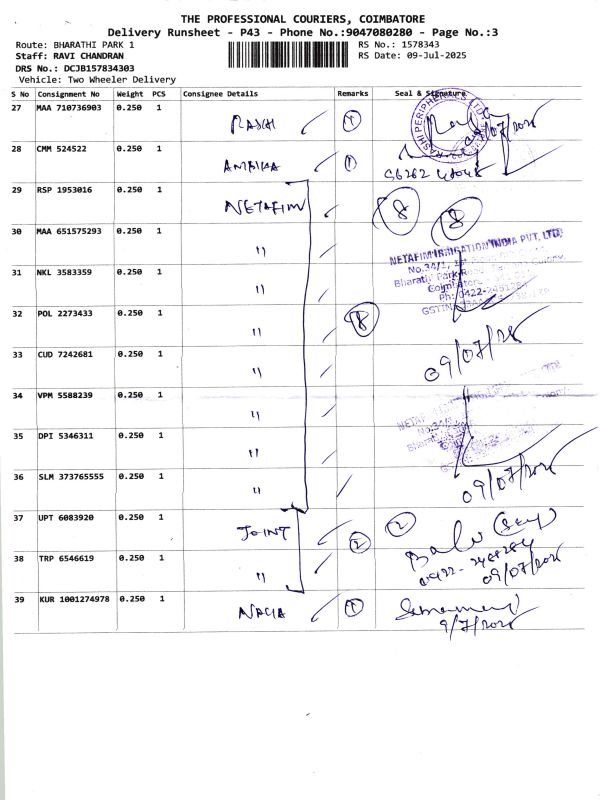 THE PROFESSIONAL COURIERS, COIMBATORE
Delivery Runsheet - P43 - Phone No.:9047080280 - Page No.:3
Route: BHARATHI PARK 1 RS No.: 1578343
Staff: RAVI CHANDRAN RS Date: 09-Jul-2025
DRS No.: DCJB157834303
Vehicle: Two Wheeler Delivery
S No Consignment No Weight PCS Consignee Details Remarks Seal & Signature
27 MAA 710736903 0.250 1 RASHI 1
28 CMM 524522 0.250 1 AMBIKA 1
29 RSP 1953016 0.250 1 NETAFIM 8 8
30 MAA 651575293 0.250 1 "
NETAFIM IRRIGATION INDIA PVT. LTD.
No.34/1,
Bharathi Park Road
31 NKL 3583359 0.250 1 "
Coimbatore
Ph: 0422-
GSTIN
32 POL 2273433 0.250 1 " 8
33 CUD 7242681 0.250 1 " 09/07/25
34 VPM 5588239 0.250 1 "
35 DPI 5346311 0.250 1 "
36 SLM 373765555 0.250 1 " 09/07/2025
37 UPT 6083920 0.250 1 JOINT 2 2
38 TRP 6546619 0.250 1 " 09/07/2025
39 KUR 1001274978 0.250 1 NAGA 1
9/7/2025